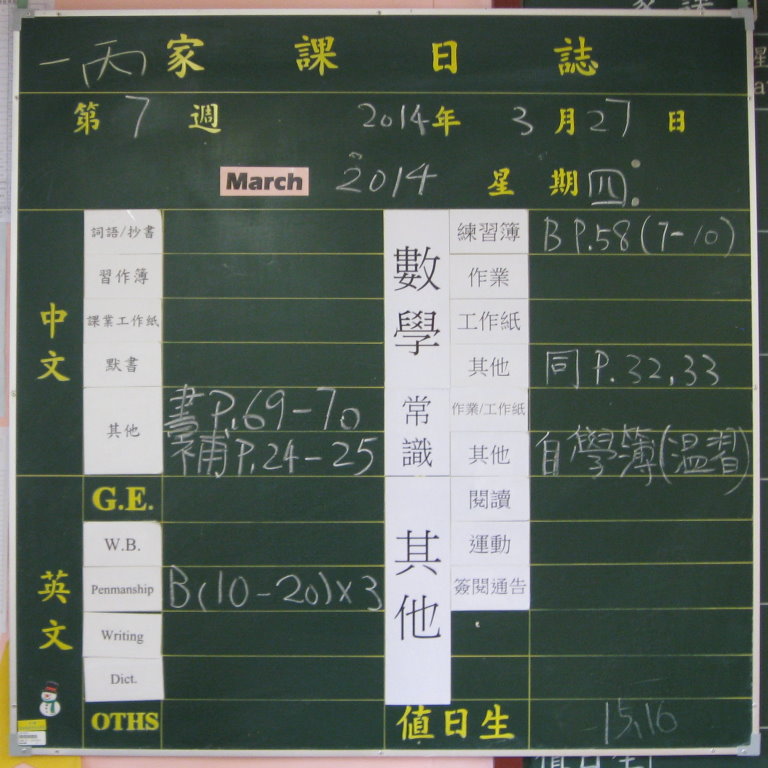 一丙 家課日誌
第 7 週 2014年 3月27日
March 2014 星期四
中文
詞語/抄書
習作簿
課業工作紙
默書
其他 書P.69-70
補P.24-25
英文
G.E.
W.B.
Penmanship B(10-20)x3
Writing
Dict.
OTHS
數學
練習簿 B P.58(7-10)
作業
工作紙
其他 同 P.32,33
常識
作業/工作紙
其他 自學簿(溫習)
其他
閱讀
運動
簽閱通告
值日生 15,16